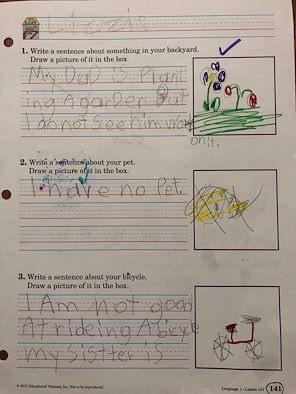 Lizzie
1. Write a sentence about something in your backyard.
Draw a picture of it in the box.
My DaD is Plant
ing A garden But
I do not see him work
on it.
2. Write a sentence about your pet.
Draw a picture of it in the box.
I have no Pet.
3. Write a sentence about your bicycle.
Draw a picture of it in the box.
I Am not good
At rideing A bicycle
my SiStter iS
© 2015 Educational Ventures, Inc. Not to be reproduced.
Language 1 • Lesson 141
141